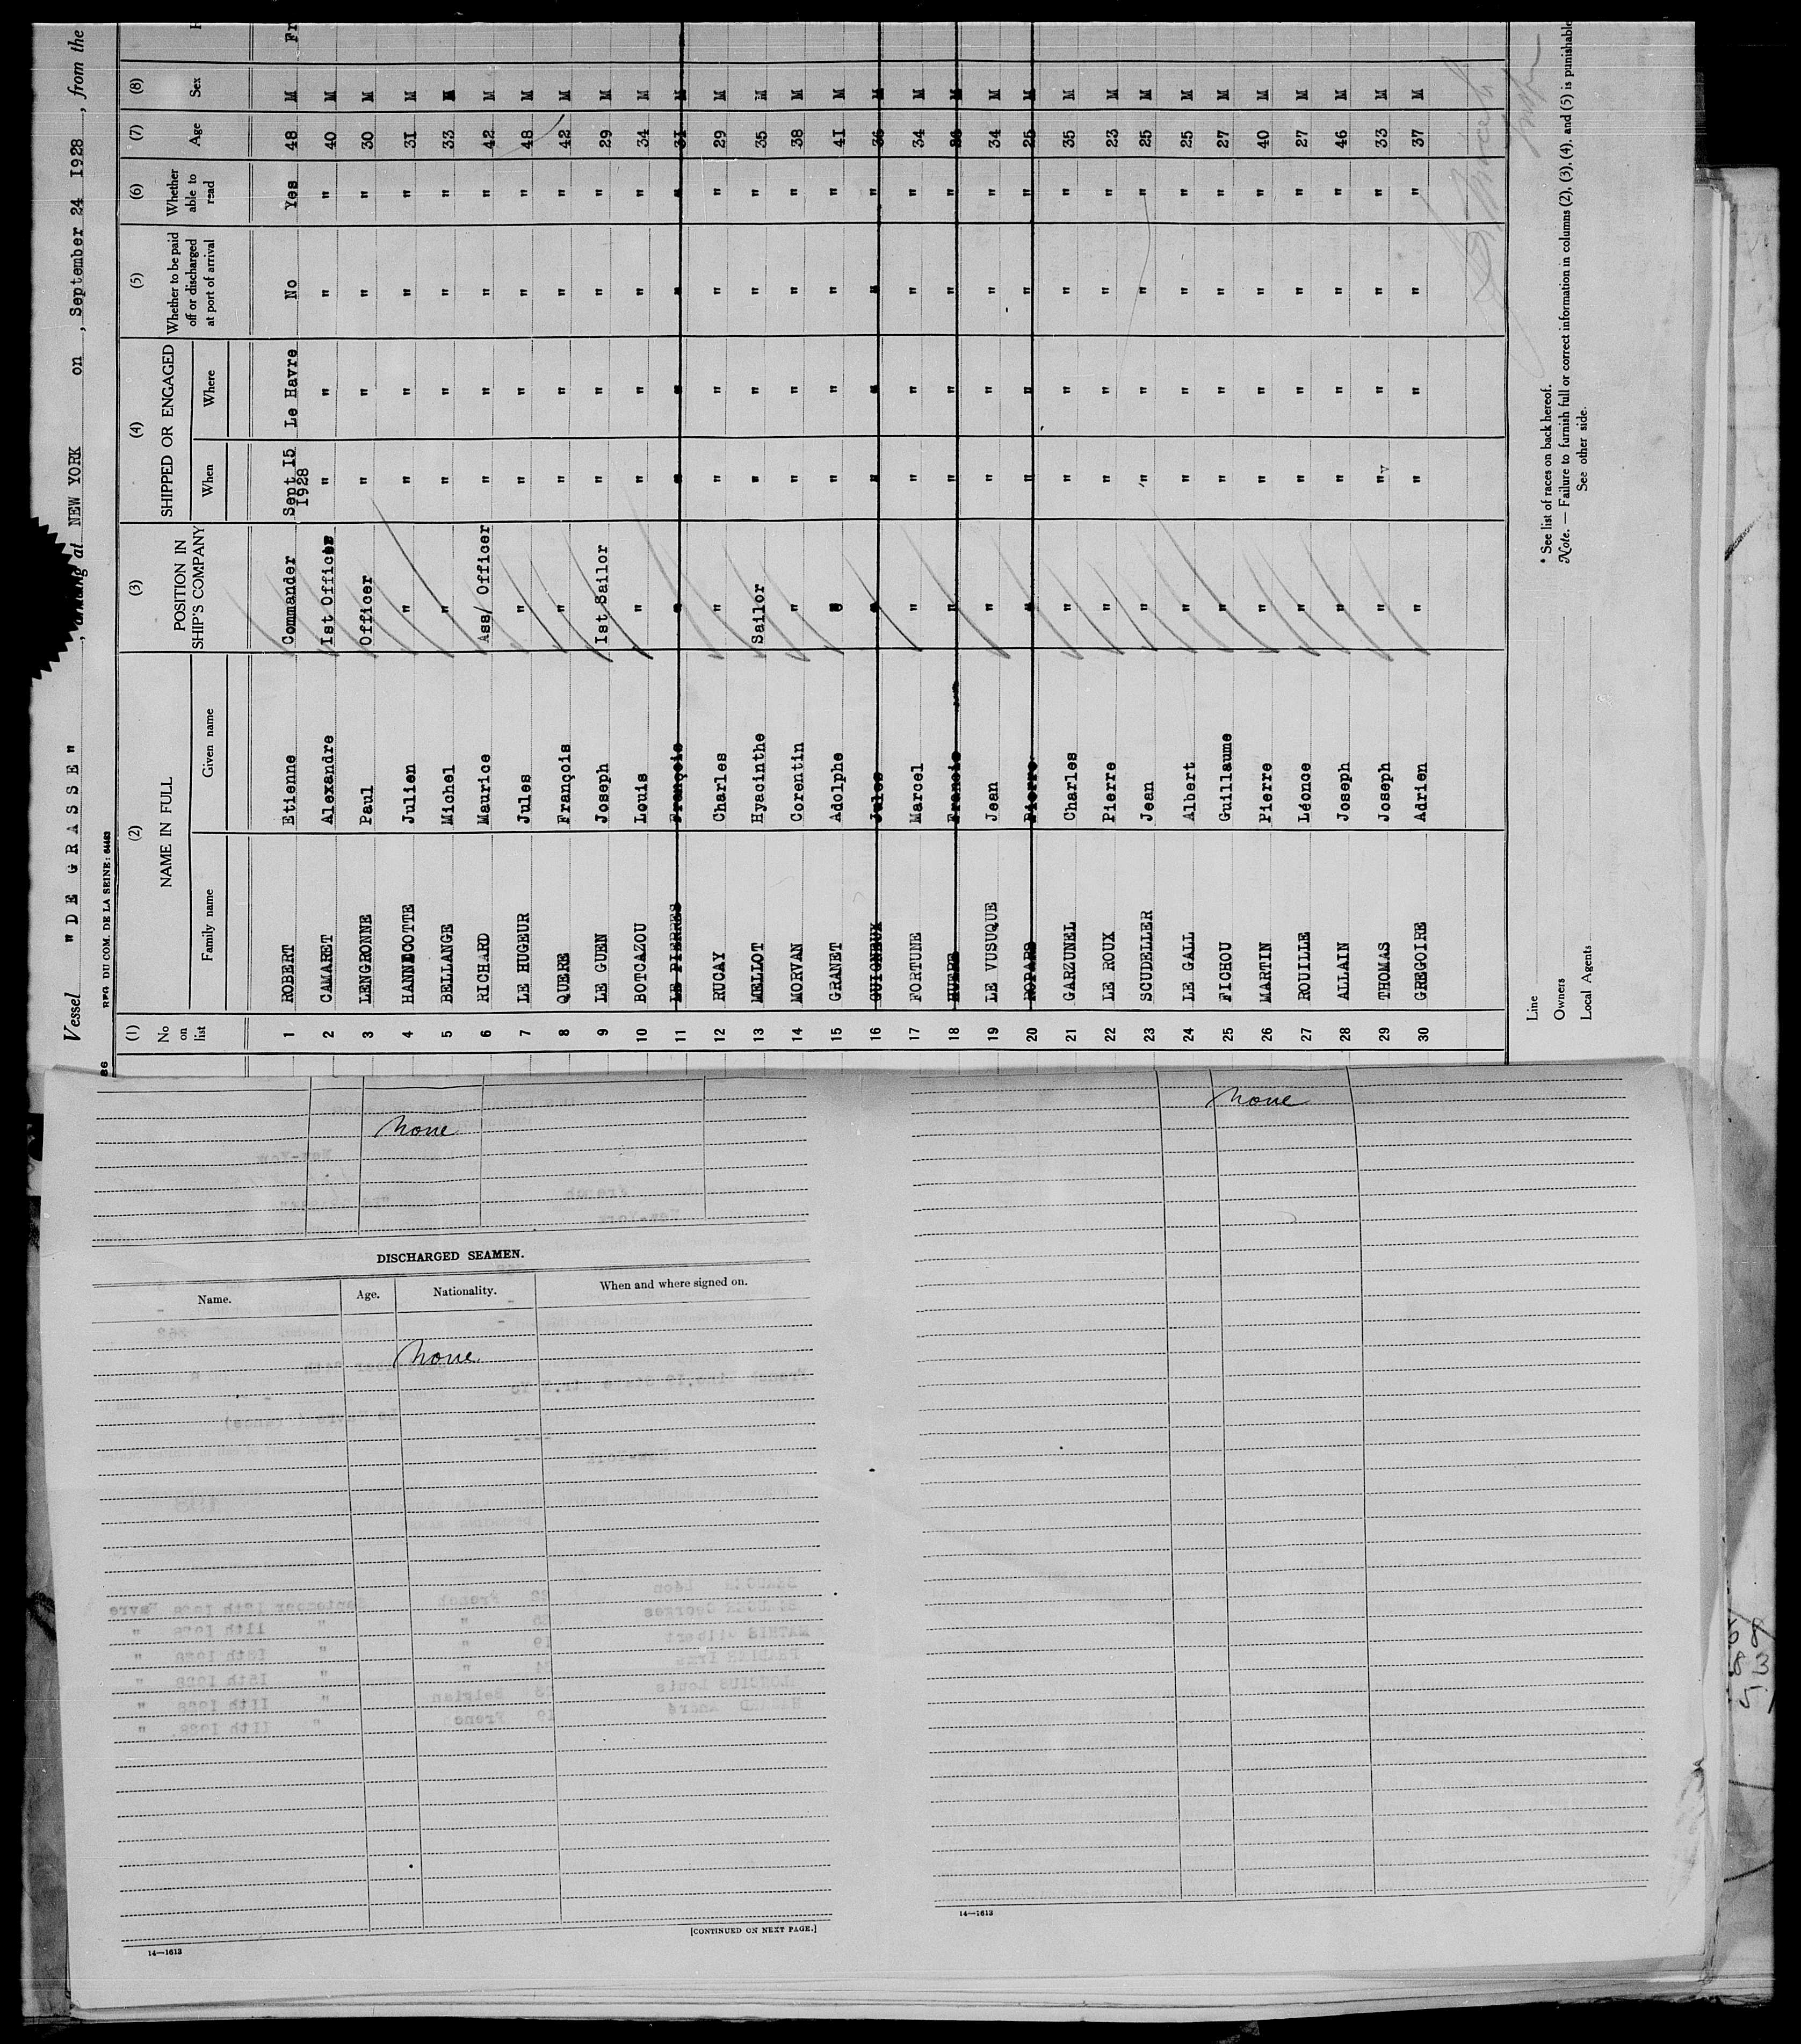 Vessel "DE GRASSE", arriving at NEW YORK on, September 24 1928, from the
REG DU COM. DE LA SEINE: 64463
86
(1) (2) (3) (4) (5) (6) (7) (8)
No on list NAME IN FULL POSITION IN SHIP'S COMPANY SHIPPED OR ENGAGED Whether to be paid off or discharged at port of arrival Whether able to read Age Sex
Family name Given name When Where
1 ROBERT Etienne Commander Sept 15 1928 Le Havre No Yes 48 M Fr
2 CAMARET Alexandre 1st Officer " " " " 40 M
3 LENGRONNE Paul Officer " " " " 30 M
4 HANNECOTTE Julien " " " " " 31 M
5 BELLANGE Michel " " " " " 33 M
6 RICHARD Maurice Ass/ Officer " " " " 42 M
7 LE HUGEUR Jules " " " " " 48 M
8 QUERE François " " " " " 42 M
9 LE GUEN Joseph 1st Sailor " " " " 29 M
10 BOTCAZOU Louis " " " " " 34 M
11 LE PIERRES François " " " " " 31 M
12 RUCAY Charles " " " " " 29 M
13 MELLOT Hyacinthe Sailor " " " " 35 M
14 MORVAN Corentin " " " " " 38 M
15 GRANET Adolphe " " " " " 41 M
16 GUIGNEUX Jules " " " " " 36 M
17 FORTUNE Marcel " " " " " 34 M
18 Francis " " " " " M
19 LE VUSUQUE Jean " " " " " 34 M
20 ROPARS Pierre " " " " " 25 M
21 GARZUNEL Charles " " " " " 35 M
22 LE ROUX Pierre " " " " " 23 M
23 SCUDELLER Jean " " " " " 25 M
24 LE GALL Albert " " " " " 25 M
25 FICHOU Guillaume " " " " " 27 M
26 MARTIN Pierre " " " " " 40 M
27 ROUILLE Léonce " " " " " 27 M
28 ALLAIN Joseph " " " " " 46 M
29 THOMAS Joseph " " " " " 33 M
30 GREGOIRE Adrien " " " " " 37 M
Line
Owners
Local Agents
* See list of races on back hereof.
Note. — Failure to furnish full or correct information in columns (2), (3), (4), and (5) is punishable
See other side.
None
DISCHARGED SEAMEN.
Name. Age. Nationality. When and where signed on.
None
[CONTINUED ON NEXT PAGE.]
14—1613
None
14—1613